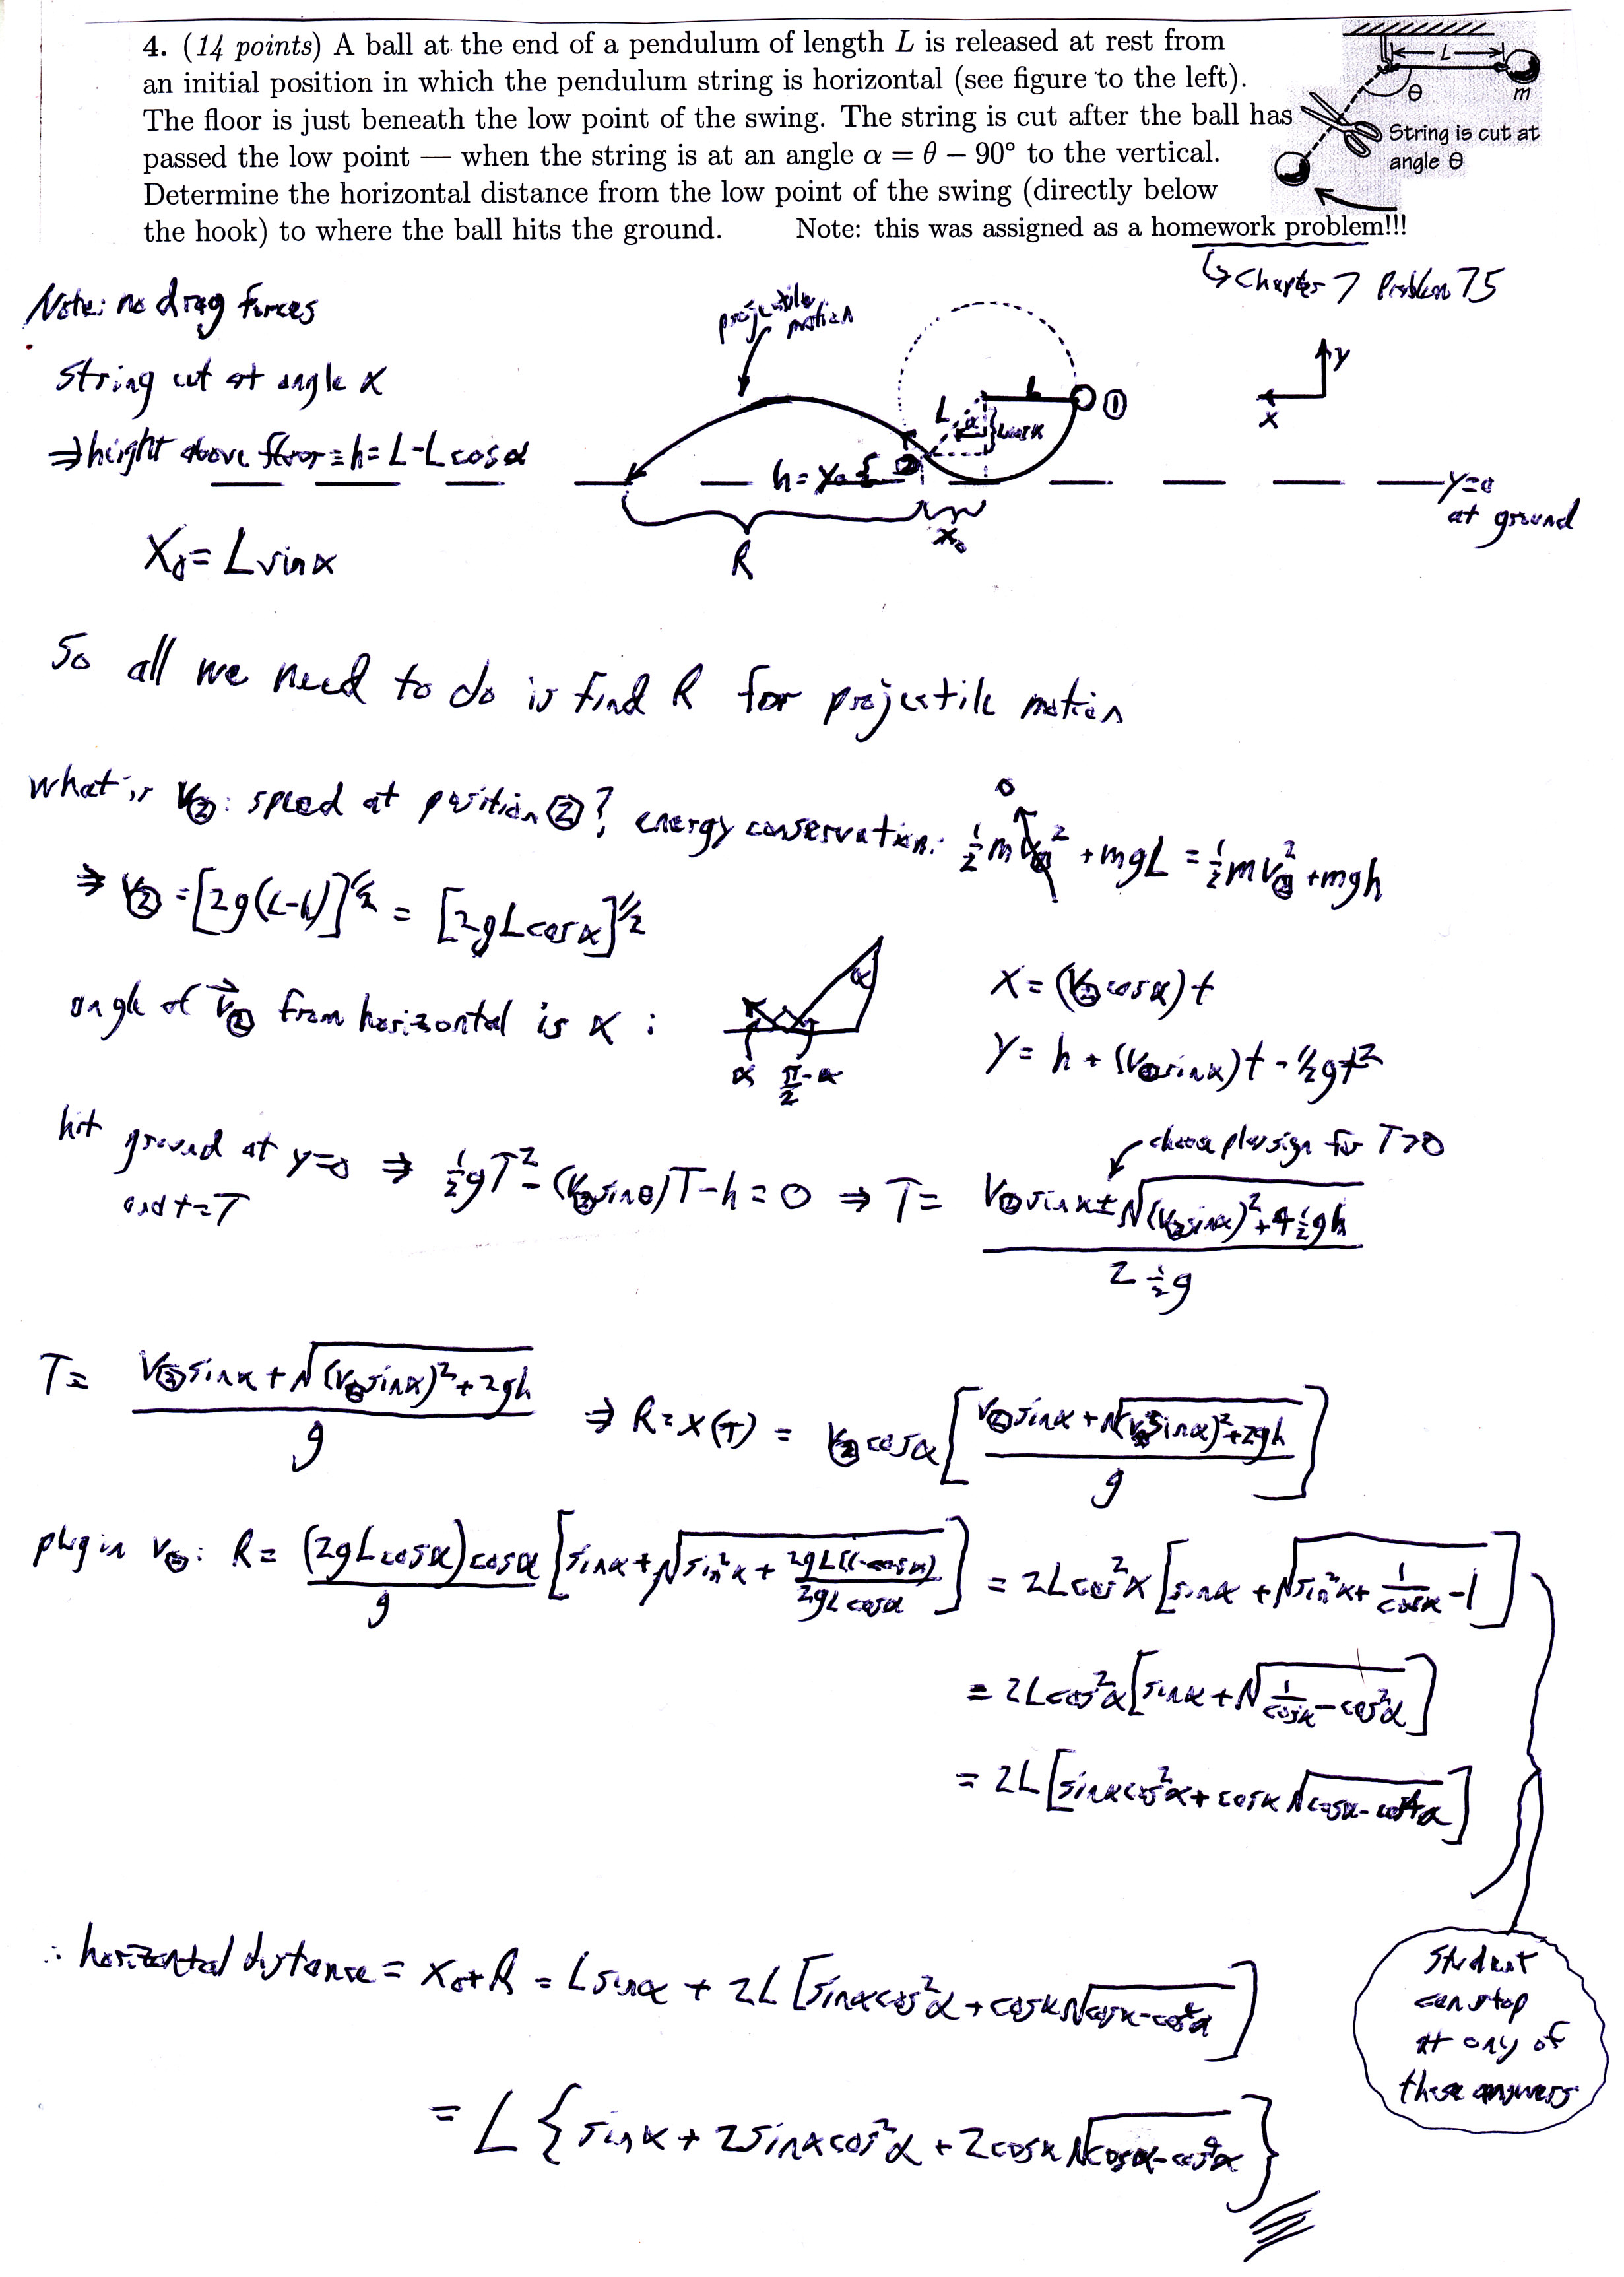 4. (14 points) A ball at the end of a pendulum of length L is released at rest from
an initial position in which the pendulum string is horizontal (see figure to the left).
The floor is just beneath the low point of the swing. The string is cut after the ball has
passed the low point — when the string is at an angle α = θ − 90° to the vertical.
Determine the horizontal distance from the low point of the swing (directly below
the hook) to where the ball hits the ground. Note: this was assigned as a homework problem!!!
L
θ
m
String is cut at
angle θ
↳ Chapter 7 Problem 75
Note: no drag forces
projectile
motion
string cut at angle α
L
L
①
α
Lcosα
y
x
⇒ height above floor ≡ h = L-Lcosα
h = y₀
②
y=0
at ground
X₀ = L sinα
R
x₀
So all we need to do is find R for projectile motion
what is v②: speed at position ②? energy conservation: ½mv①² + mgL = ½mv②² + mgh
0
⇒ v② = [2g(L-h)]^½ = [2gLcosα]^½
angle of v⃗② from horizontal is α :
α
α π/2-α
X = (v②cosα)t
Y = h + (v②sinα)t - ½gt²
hit ground at y=0 ⇒ ½gT² - (v②sinθ)T - h = 0 ⇒ T = (v②sinα ± √((v②sinα)² + 4½gh)) / (2 ½g)
and t=T
choose plus sign for T>0
T = (v②sinα + √((v②sinα)² + 2gh)) / g ⇒ R = x(T) = v②cosα [(v②sinα + √((v②sinα)² + 2gh)) / g]
plug in v②: R = ((2gLcosα)cosα / g) [sinα + √(sin²α + 2gL(1-cosα) / 2gLcosα)] = 2Lcos²α [sinα + √(sin²α + 1/cosα - 1)]
= 2Lcos²α [sinα + √(1/cosα - cos²α)]
= 2L [sinαcos²α + cosα √(cosα - cos⁴α)]
∴ horizontal distance = X₀ + R = Lsinα + 2L [sinαcos²α + cosα√(cosα - cos⁴α)]
= L {sinα + 2sinαcos²α + 2cosα√(cosα - cos⁴α)}
Student
can stop
at any of
these answers